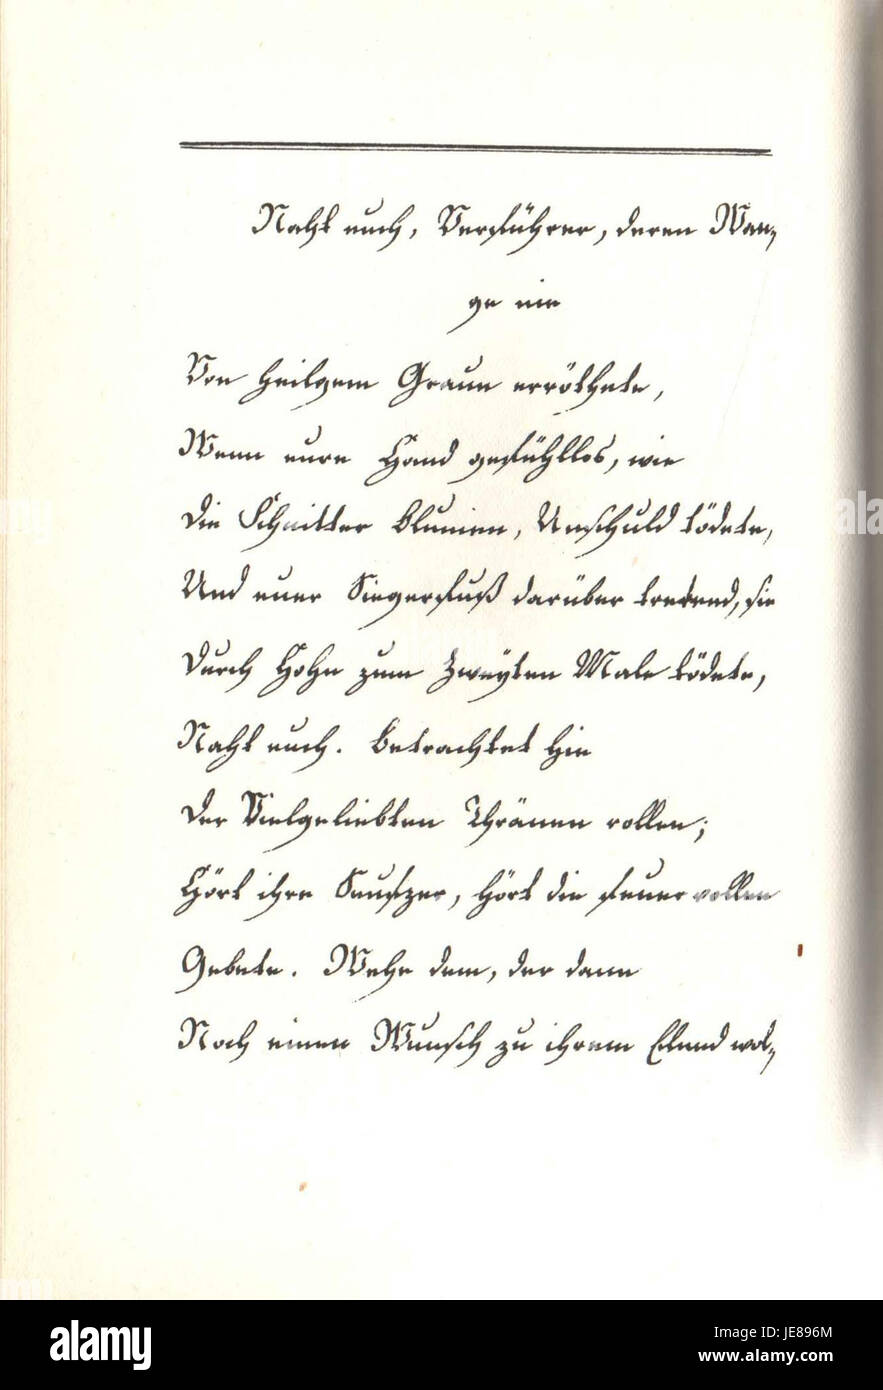 Naht euch, Verführer, deren Wan-
ge nie
Von heilgem Graun erröthete,
Wenn eure Hand gefühllos, wie
die Schnitter Blumen, Unschuld tödete,
Und euer Siegerfuß darüber tretend, sie
durch Hohn zum zweyten Male tödete,
Naht euch. Betrachtet hie
der Vielgeliebten Thränen rollen;
Hört ihre Seufzer, hört die feuervollen
Gebete. Wehe dem, der dann
Noch einen Wunsch zu ihrem Elend wol-
my
ala
my
alamy
Image ID: JE896M
www.alamy.com